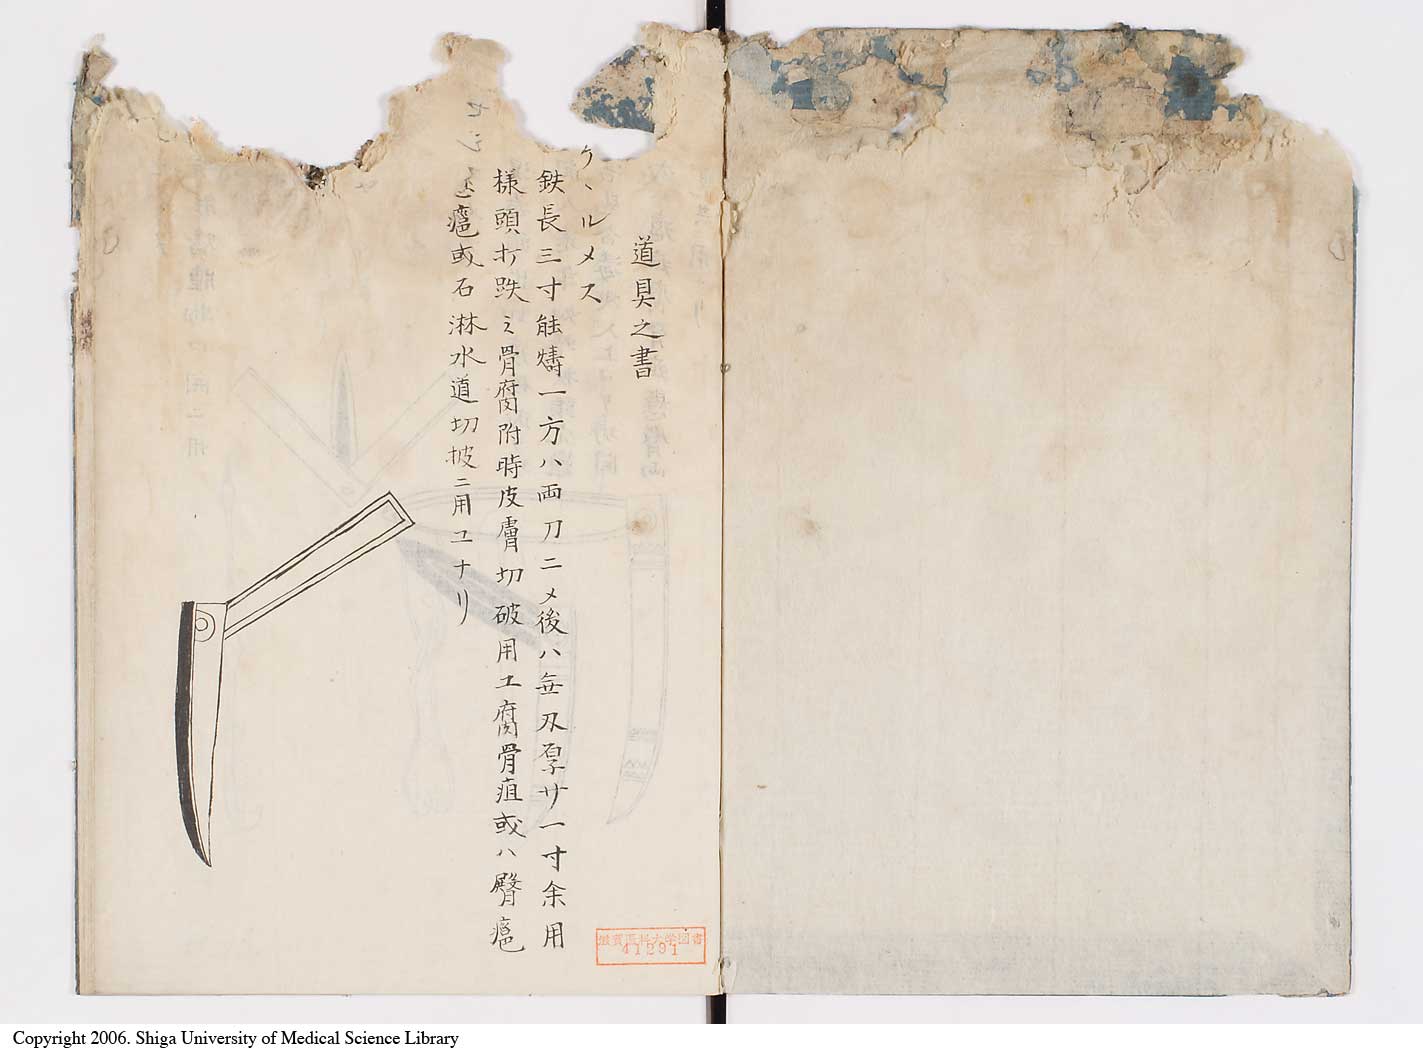 道具之書
ケヽルメス
鉄長三寸能鑄一方ハ両刀ニメ後ハ無刄厚サ一寸余用
様頭打跌ミ骨腐附時皮膚切破用エ腐骨疽或ハ臀癰
癰或石淋水道切披ニ用ユナリ
セシ
滋賀医科大学図書
41291
Copyright 2006. Shiga University of Medical Science Library